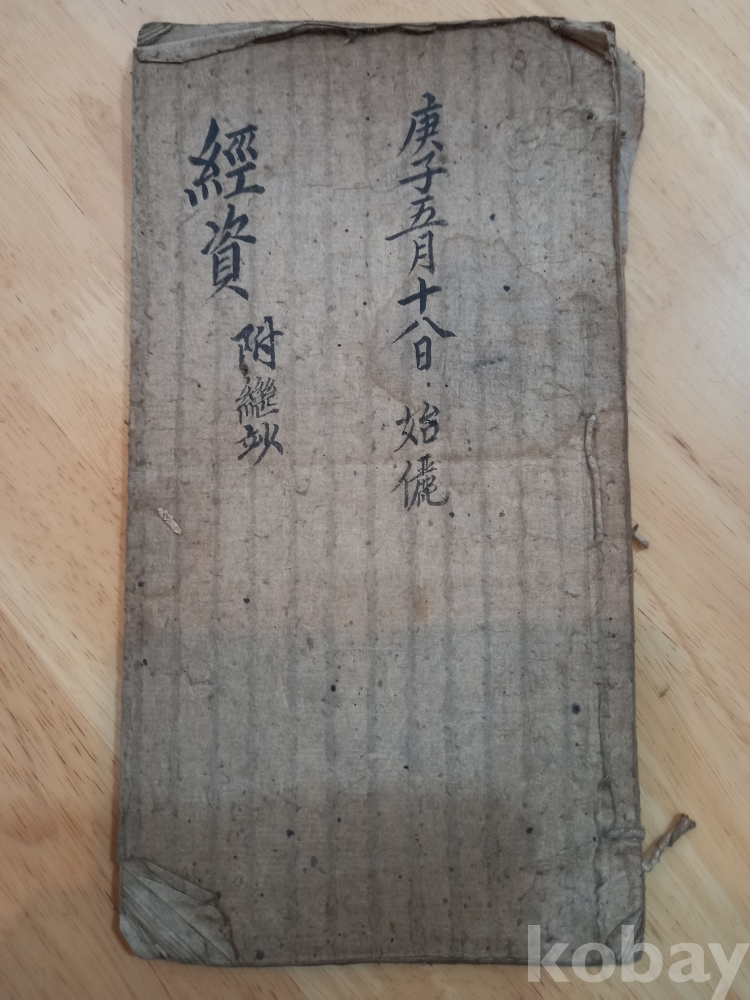 庚子五月十八日 始儷
經資 附繼妙
kobay